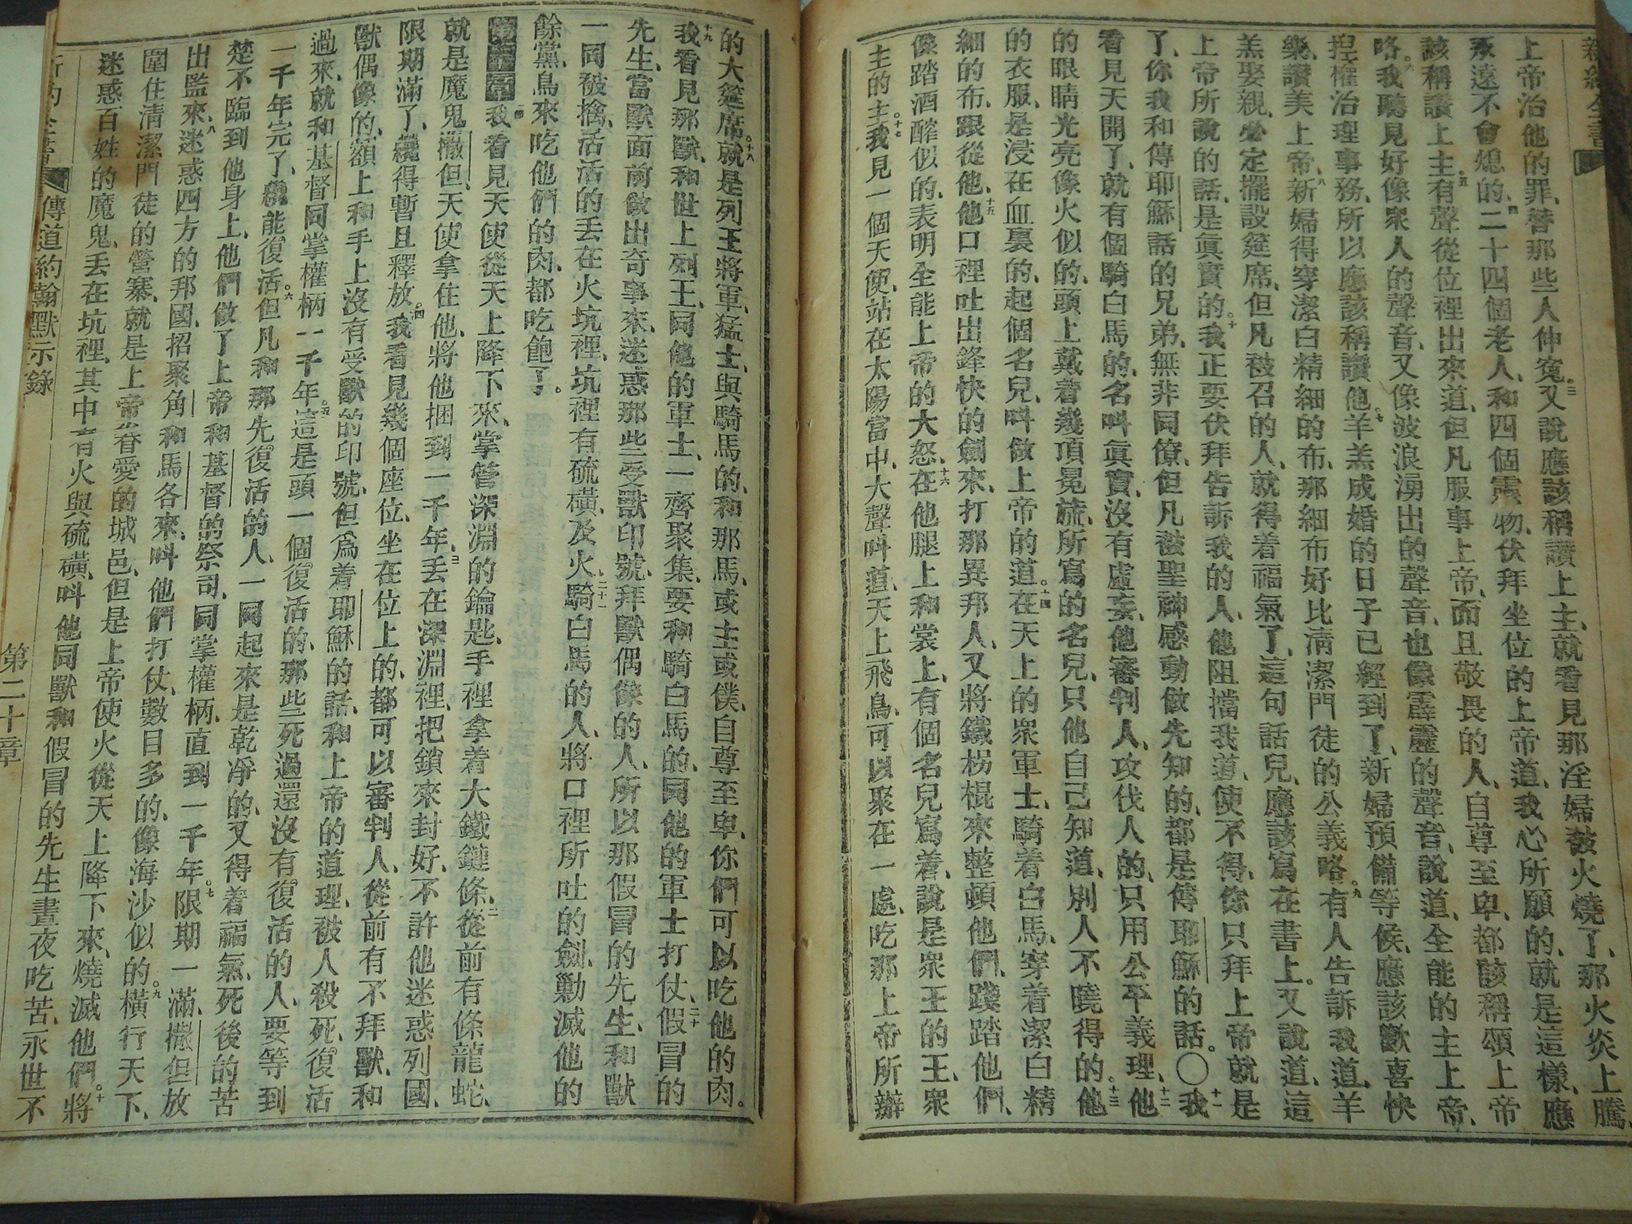 新約全書
上帝治他的罪、替那些人伸冤。三又說、應該稱讚上主、就看見那淫婦被火燒了、那火炎上騰、
永遠不會熄的、四二十四個老人、和四個靈物、伏拜坐位的上帝道、我心所願的、就是這樣、應
該稱讚上主。五有聲從位裡出來道、但凡服事上帝、而且敬畏的人、自尊至卑、都該稱頌上帝
咯。六我聽見好像衆人的聲音、又像波浪湧出的聲音、也像霹靂的聲音、說道、全能的主上帝、
掌權治理事務、所以應該稱讚他。七羊羔成婚的日子已經到了、新婦預備等候、應該歡喜快
樂、讚美上帝、八新婦得穿潔白精細的布、那細布好比清潔門徒的公義咯。九有人告訴我道、羊
羔娶親、必定擺設筵席、但凡被召的人、就得着福氣了、這句話兒、應該寫在書上。又說道、這
上帝所說的話、是眞實的。十我正要伏拜告訴我的人、他阻擋我道、使不得、你只拜上帝就是
了、你我和傳耶穌話的兄弟、無非同僚、但凡被聖神感動做先知的、都是傳耶穌的話。〇十一我
看見天開了、就有個騎白馬的、名呌眞實、沒有虛妄、他審判人、攻伐人的、只用公平義理、十二他
的眼睛光亮、像火似的、頭上戴着幾頂冕旒、所寫的名兒、只他自己知道、別人不曉得的、十三他
的衣服、是浸在血裏的、起個名兒、呌做上帝的道。十四在天上的衆軍士、騎着白馬、穿着潔白精
細的布、跟從他、十五他口裡吐出鋒快的劍來、打那異邦人、又將鐵柺棍來整頓他們、踐踏他們、
像踏酒醡似的、表明全能上帝的大怒、十六在他腿上和裳上、有個名兒寫着、說是衆王的王、衆
主的主。十七我見一個天使、站在太陽當中、大聲呌道、天上飛鳥、可以聚在一處、吃那上帝所辦
的大筵席、十八就是列王將軍、猛士、與騎馬的、和那馬、或主或僕、自尊至卑、你們可以吃他的肉。
十九我看見那獸、和世上列王、同他的軍士、一齊聚集、要和騎白馬的、同他的軍士打仗、二十假冒的
先生、當獸面前做出奇事來、迷惑那些受獸印號、拜獸偶像的人、所以那假冒的先生、和獸
一同被擒、活活的丟在火坑裡、坑裡有硫磺、及火、二十一騎白馬的人、將口裡所吐的劍、勦滅他的
餘黨、鳥來吃他們的肉、都吃飽了。
第二十章 一我看見天使從天上降下來、掌管深淵的鑰匙、手裡拿着大鐵鏈條、二從前有條龍蛇、
就是魔鬼撒但、天使拿住他、將他捆到一千年、三丟在深淵裡、把鎖來封好、不許他迷惑列國、
限期滿了、纔得暫且釋放。四我看見幾個座位、坐在位上的、都可以審判人、從前有不拜獸、和
獸偶像的、額上和手上、沒有受獸的印號、但爲着耶穌的話、和上帝的道理、被人殺死、復活
過來、就和基督同掌權柄一千年。五這是頭一個復活的、那些死過還沒有復活的人、要等到
一千年完了、纔能復活。六但凡和那先復活的人、一同起來、是乾凈的、又得着福氣、死後的苦
楚不臨到他身上、他們做了上帝和基督的祭司、同掌權柄、直到一千年。七限期一滿、撒但放
出監來、八迷惑四方的邦國、招聚角和馬各來、呌他們打仗、數目多的、像海沙似的。九橫行天下、
圍住清潔門徒的營寨、就是上帝眷愛的城邑、但是上帝使火從天上降下來、燒滅他們。十將
迷惑百姓的魔鬼、丟在坑裡、其中有火與硫磺、呌他同獸和假冒的先生、晝夜吃苦、永世不
新約全書 傳道約翰默示錄 第二十章